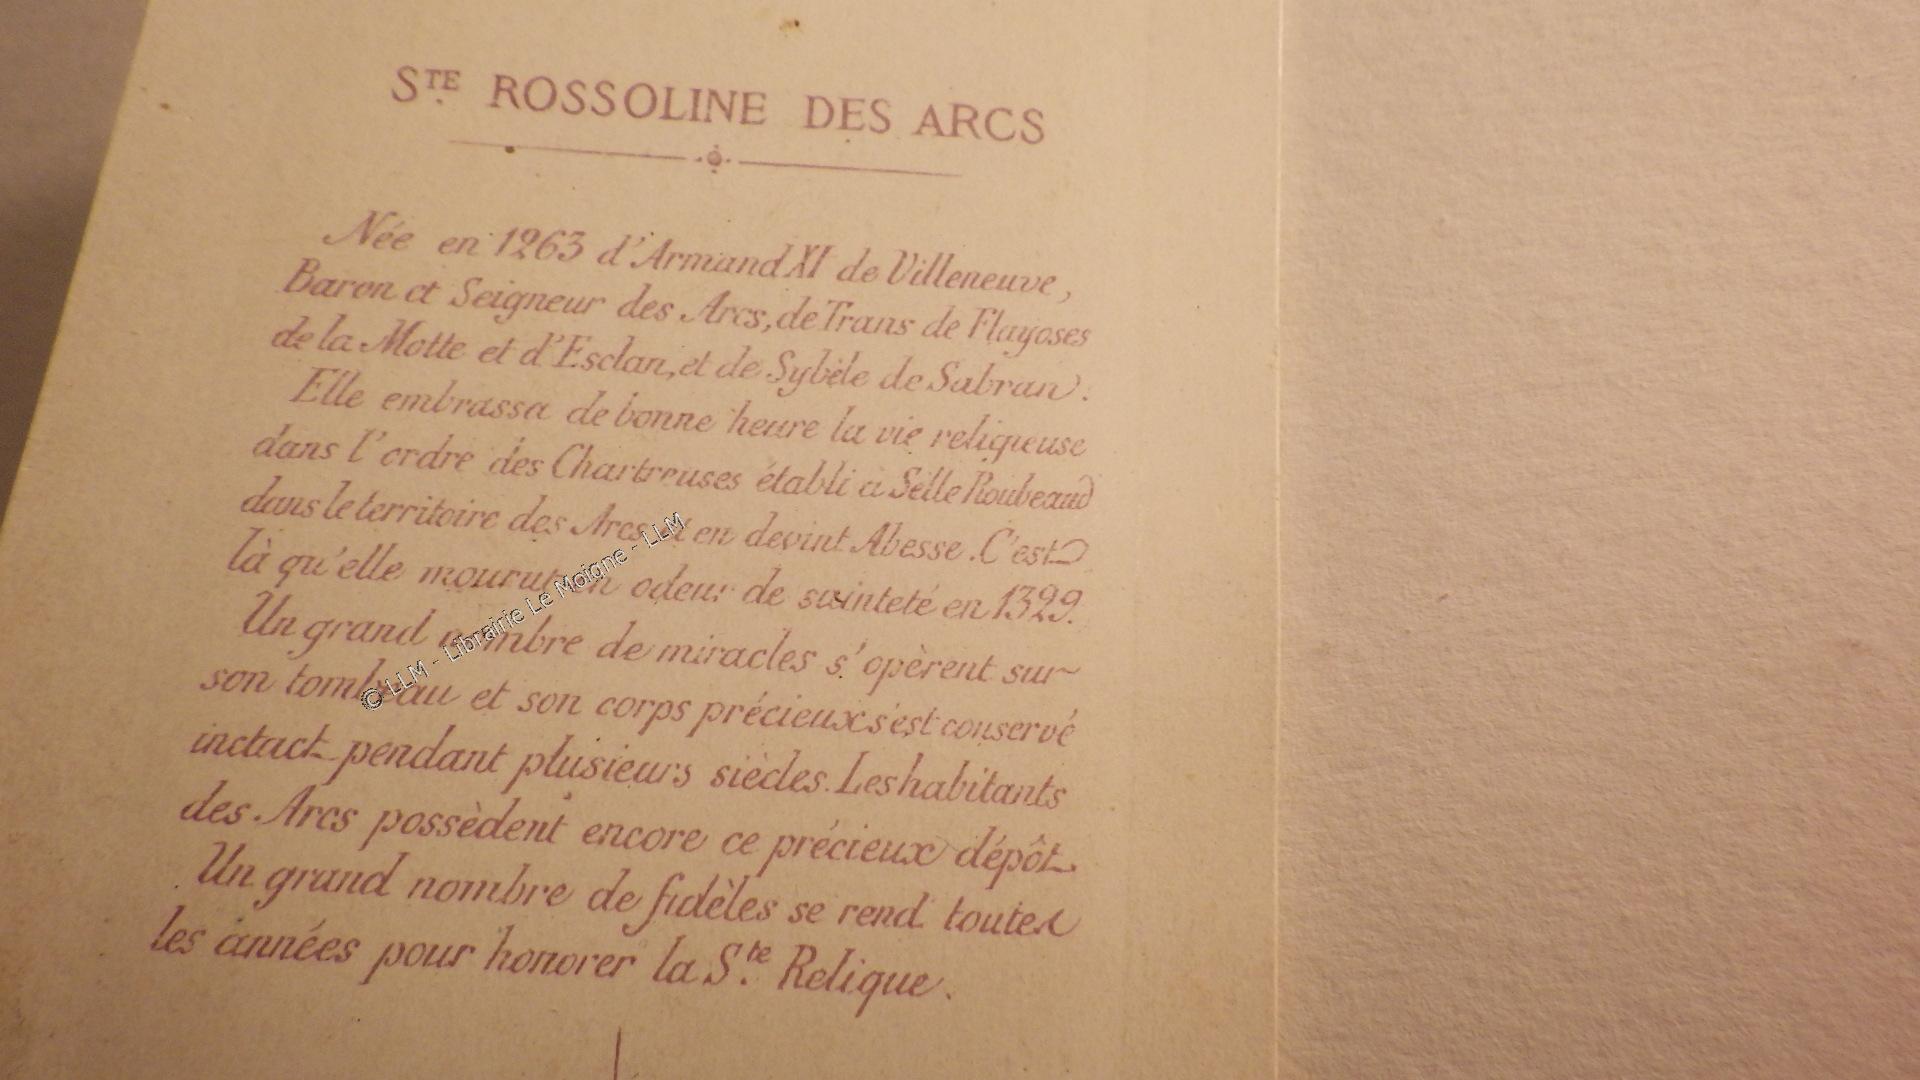 STE ROSSOLINE DES ARCS
Née en 1263 d'Armand XI de Villeneuve,
Baron et Seigneur des Arcs, de Trans de Flayoses
de la Motte et d'Esclan, et de Sybèle de Sabran.
Elle embrassa de bonne heure la vie religieuse
dans l'ordre des Chartreuses établi à Selle Roubeaud
dans le territoire des Arcs et en devint Abesse. C'est
là qu'elle mourut en odeur de sainteté en 1329.
Un grand nombre de miracles s'opèrent sur
son tombeau et son corps précieux s'est conservé
inctact pendant plusieurs siècles. Les habitants
des Arcs possèdent encore ce précieux dépôt.
Un grand nombre de fidèles se rend toutes
les années pour honorer la Ste Relique.
© LLM - Librairie Le Moigne - LLM